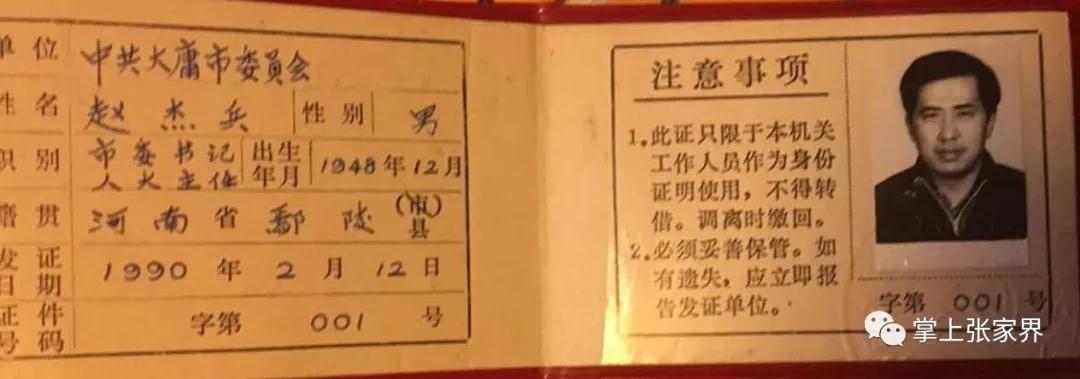 单位 中共大庸市委员会
姓名 赵杰兵 性别 男
职别 市委书记 人大主任 出生年月 1948年12月
籍贯 河南省鄢陵(市)县
发证日期 1990年2月12日
证件号码 字第001号
注意事项
1.此证只限于本机关
工作人员作为身份
证明使用，不得转
借。调离时缴回。
2.必须妥善保管。如
有遗失，应立即报
告发证单位。
字第001号
掌上张家界